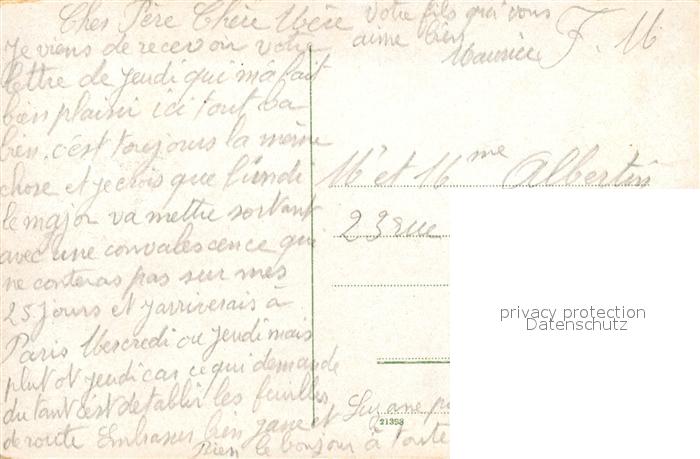 Cher Père Chère Mère
Je viens de recevoir votre
lettre de Jeudi qui m'a fait
bien plaisir ici tout va
bien. c'est toujours la même
chose et je crois que lundi
le major va mettre sortant
avec une convalescence qui
ne conteras pas sur mes
25 jours et j'arriverais à
Paris Mescredi ou Jeudi mais
plutot jeudi car ce qui demande
du tant c'est detablir les feuilles
de route Embrasses bien Jane et Suzane
Rien le bonjour à toute
Votre fils qui vous
aime bien
Maurice
F. M
Mr et Mme Albertin
23 rue
21398
privacy protection
Datenschutz